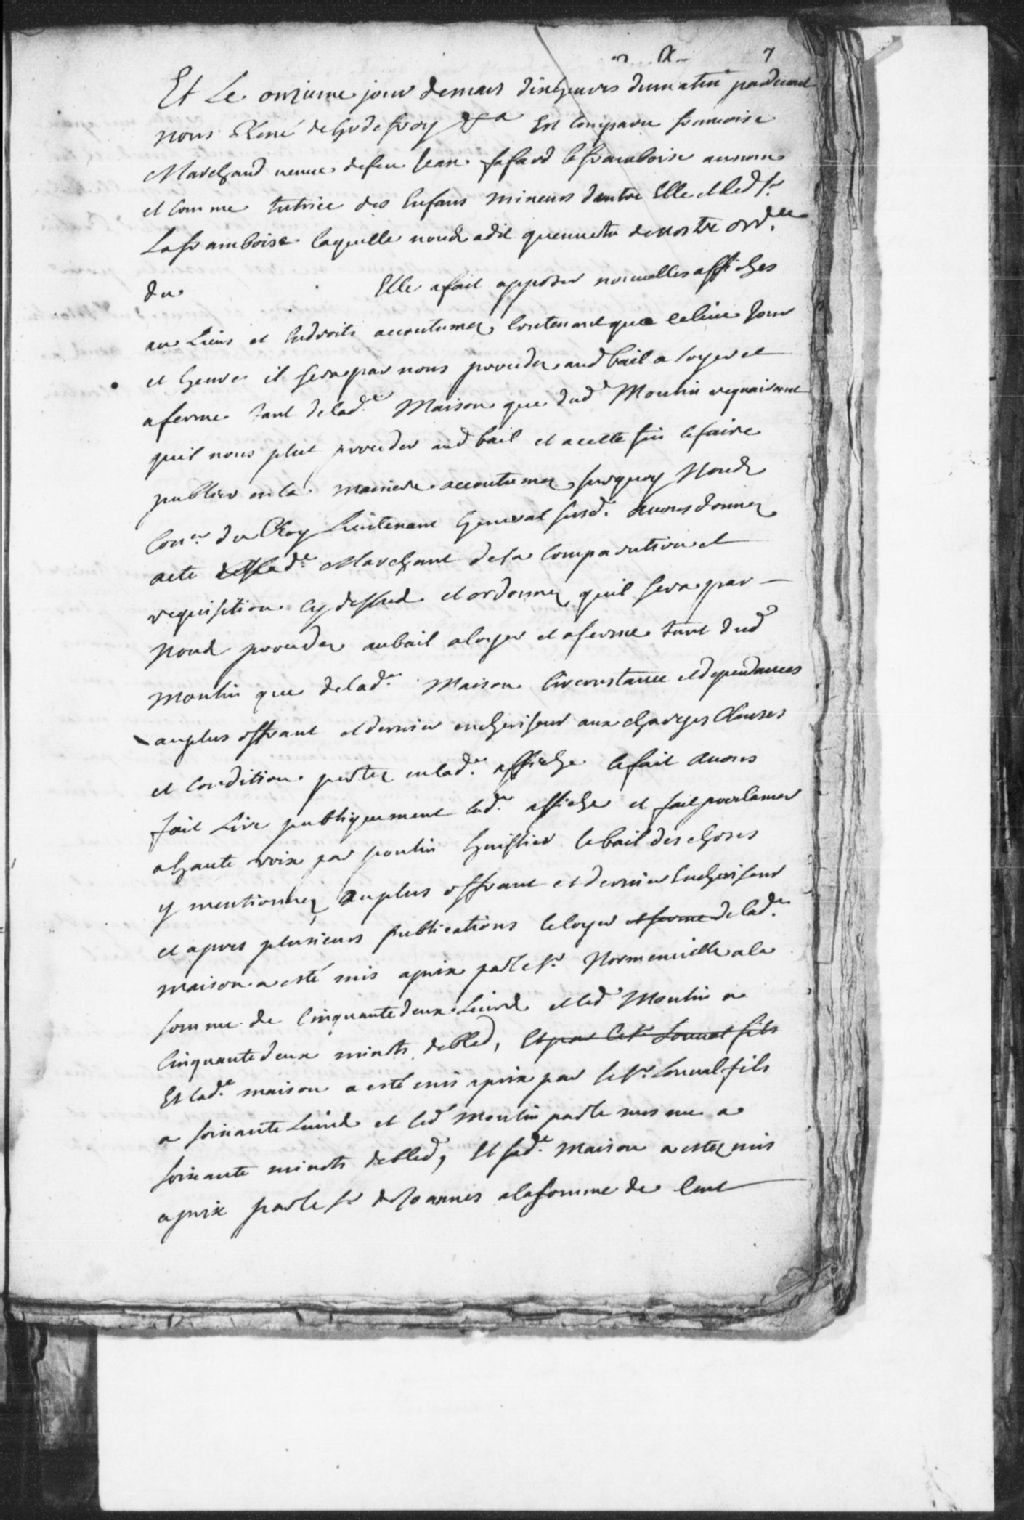 7
Et Le onzieme jour demars dix heures dumatin pardevant
nous René de Godefroy &a Est Comparue francoise
Marchand veuve defeu Jean lafond laframboise aunom
et comme tutrice des Enfans mineurs d'entre Elle et led. Sr.
Laframboise laquelle nous a dit quenvertu de nostre ord.ce
du Elle a fait apposer nouvelles affiches
au Lieux et Endroits accoutumez Contenant que ce Jour
et heure il sera par nous proceder aud bail a loyer et
aferme tant de lad.e Maison que dud.t Moulin requairant
quil nous plut proceder aud bail et a cette fin le faire
publier en la maniere accoutumez surquoy Nous
Con.er du Roy Lieutenant General susd. avons donnez
acte a lad.e Marchant de sa Comparution et
requisition cy dessus et ordonnez quil sera par
Nous proceder aubail a loyer et aferme tant dud
moulin que de lad.e Maison Circonstance et dependances
auplus offrant et dernier encherisseur aux charges Clauses
et Condition portez en lad.e affiche ce fait avons
fait Lire publiquement lad.e affiche et fait proclamer
a haute voix par poulin huissier le bail des choses
y mentionnez au plus offrant et dernier Encherisseur
et apres plusieurs publications le loyer et ferme de lad.e
maison a esté mis aprix par le Sr. Normenville a la
somme de Cinquante deux Livres et led Moulin a
Cinquante deux minots de bled, Et par le Sr. Louval fils
Et lad.e maison a esté mis aprix par le Sr. Louval fils
a soixante Livres et led moulin par le mesme a
soixante minots de bled, Et lad.e Maison a estez mis
aprix par le Sr de Joannes a la somme de Cent